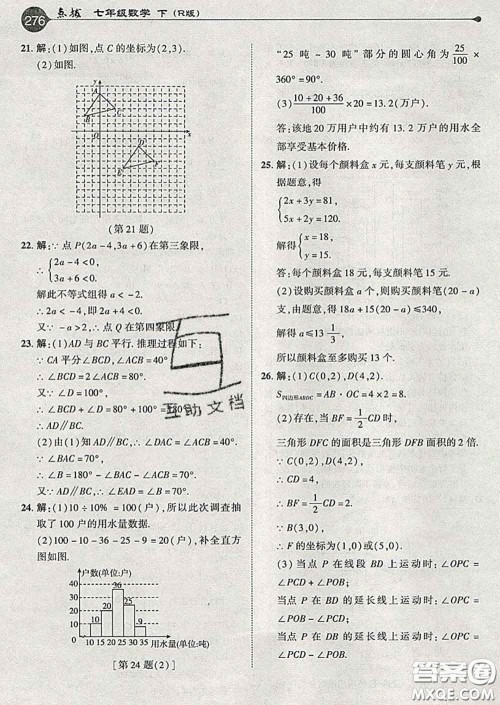 276 点拨 七年级数学 下 (R版)
21. 解:(1)如图,点 C 的坐标为(2,3).
(2)如图.
y
A
B
C
O
x
D
E
F
(第 21 题)
22. 解:∵点 P(2a-4,3a+6)在第三象限,
∴{2a-4<0,
3a+6<0.
解此不等式组得 a<-2.
∴2a-4<0,即 2a+4<0.
又∵-a>2,∴点 Q 在第四象限.
23. 解:(1)AD 与 BC 平行. 推理过程如下:
∵CA 平分∠BCD,∠ACB=40°,
∴∠BCD=2∠ACB=80°.
又∵∠D=100°,
∴∠BCD+∠D=80°+100°=180°.
∴AD∥BC.
(2)由(1)知 AD∥BC,∴∠DAC=∠ACB=40°.
∵∠BAC=70°,
∴∠B=180°-∠BAC-∠ACB=70°.
又∵AD∥BC,∴∠EAD=∠B=70°.
24. 解:(1)10÷10%=100(户),所以此次调查抽
取了 100 户的用水量数据.
(2)100-10-36-25-9=20(户),补全直方
图如图.
户数(单位:户)
40
30
20
10
10
20
36
25
9
10 15 20 25 30 35
用水量(单位:吨)
[第 24 题(2)]
“25 吨-30 吨”部分的圆心角为25/100×
360°=90°.
(3)(10+20+36)/100×20=13.2(万户).
答:该地 20 万用户中约有 13.2 万户的用水全
部享受基本价格.
25. 解:(1)设每个颜料盒 x 元,每支颜料笔 y 元,根
据题意,得
{2x+3y=81,
5x+2y=120.
解得{x=18,
y=15.
答:每个颜料盒 18 元,每支颜料笔 15 元.
(2)设购买颜料盒 a 个,则购买颜料笔(20-a)
支,由题意,得 18a+15(20-a)≤340,
解得 a≤13 1/3,
所以颜料盒至多购买 13 个.
26. 解:(1)C(0,2),D(4,2).
S四边形ABDC=AB·OC=4×2=8.
(2)存在,当 BF=1/2CD 时,
三角形 DFC 的面积是三角形 DFB 面积的 2 倍.
∵C(0,2),D(4,2),
∴CD=4.
∴BF=1/2CD=2.
∵B(3,0),
∴F 的坐标为(5,0)或(1,0).
(3)当点 P 在线段 BD 上运动时:∠OPC=
∠PCD+∠POB;
当点 P 在 BD 的延长线上运动时:∠OPC=
∠POB-∠PCD;
当点 P 在 DB 的延长线上运动时:∠OPC=
∠PCD-∠POB.
互助文档
答案圈
MXQE.COM